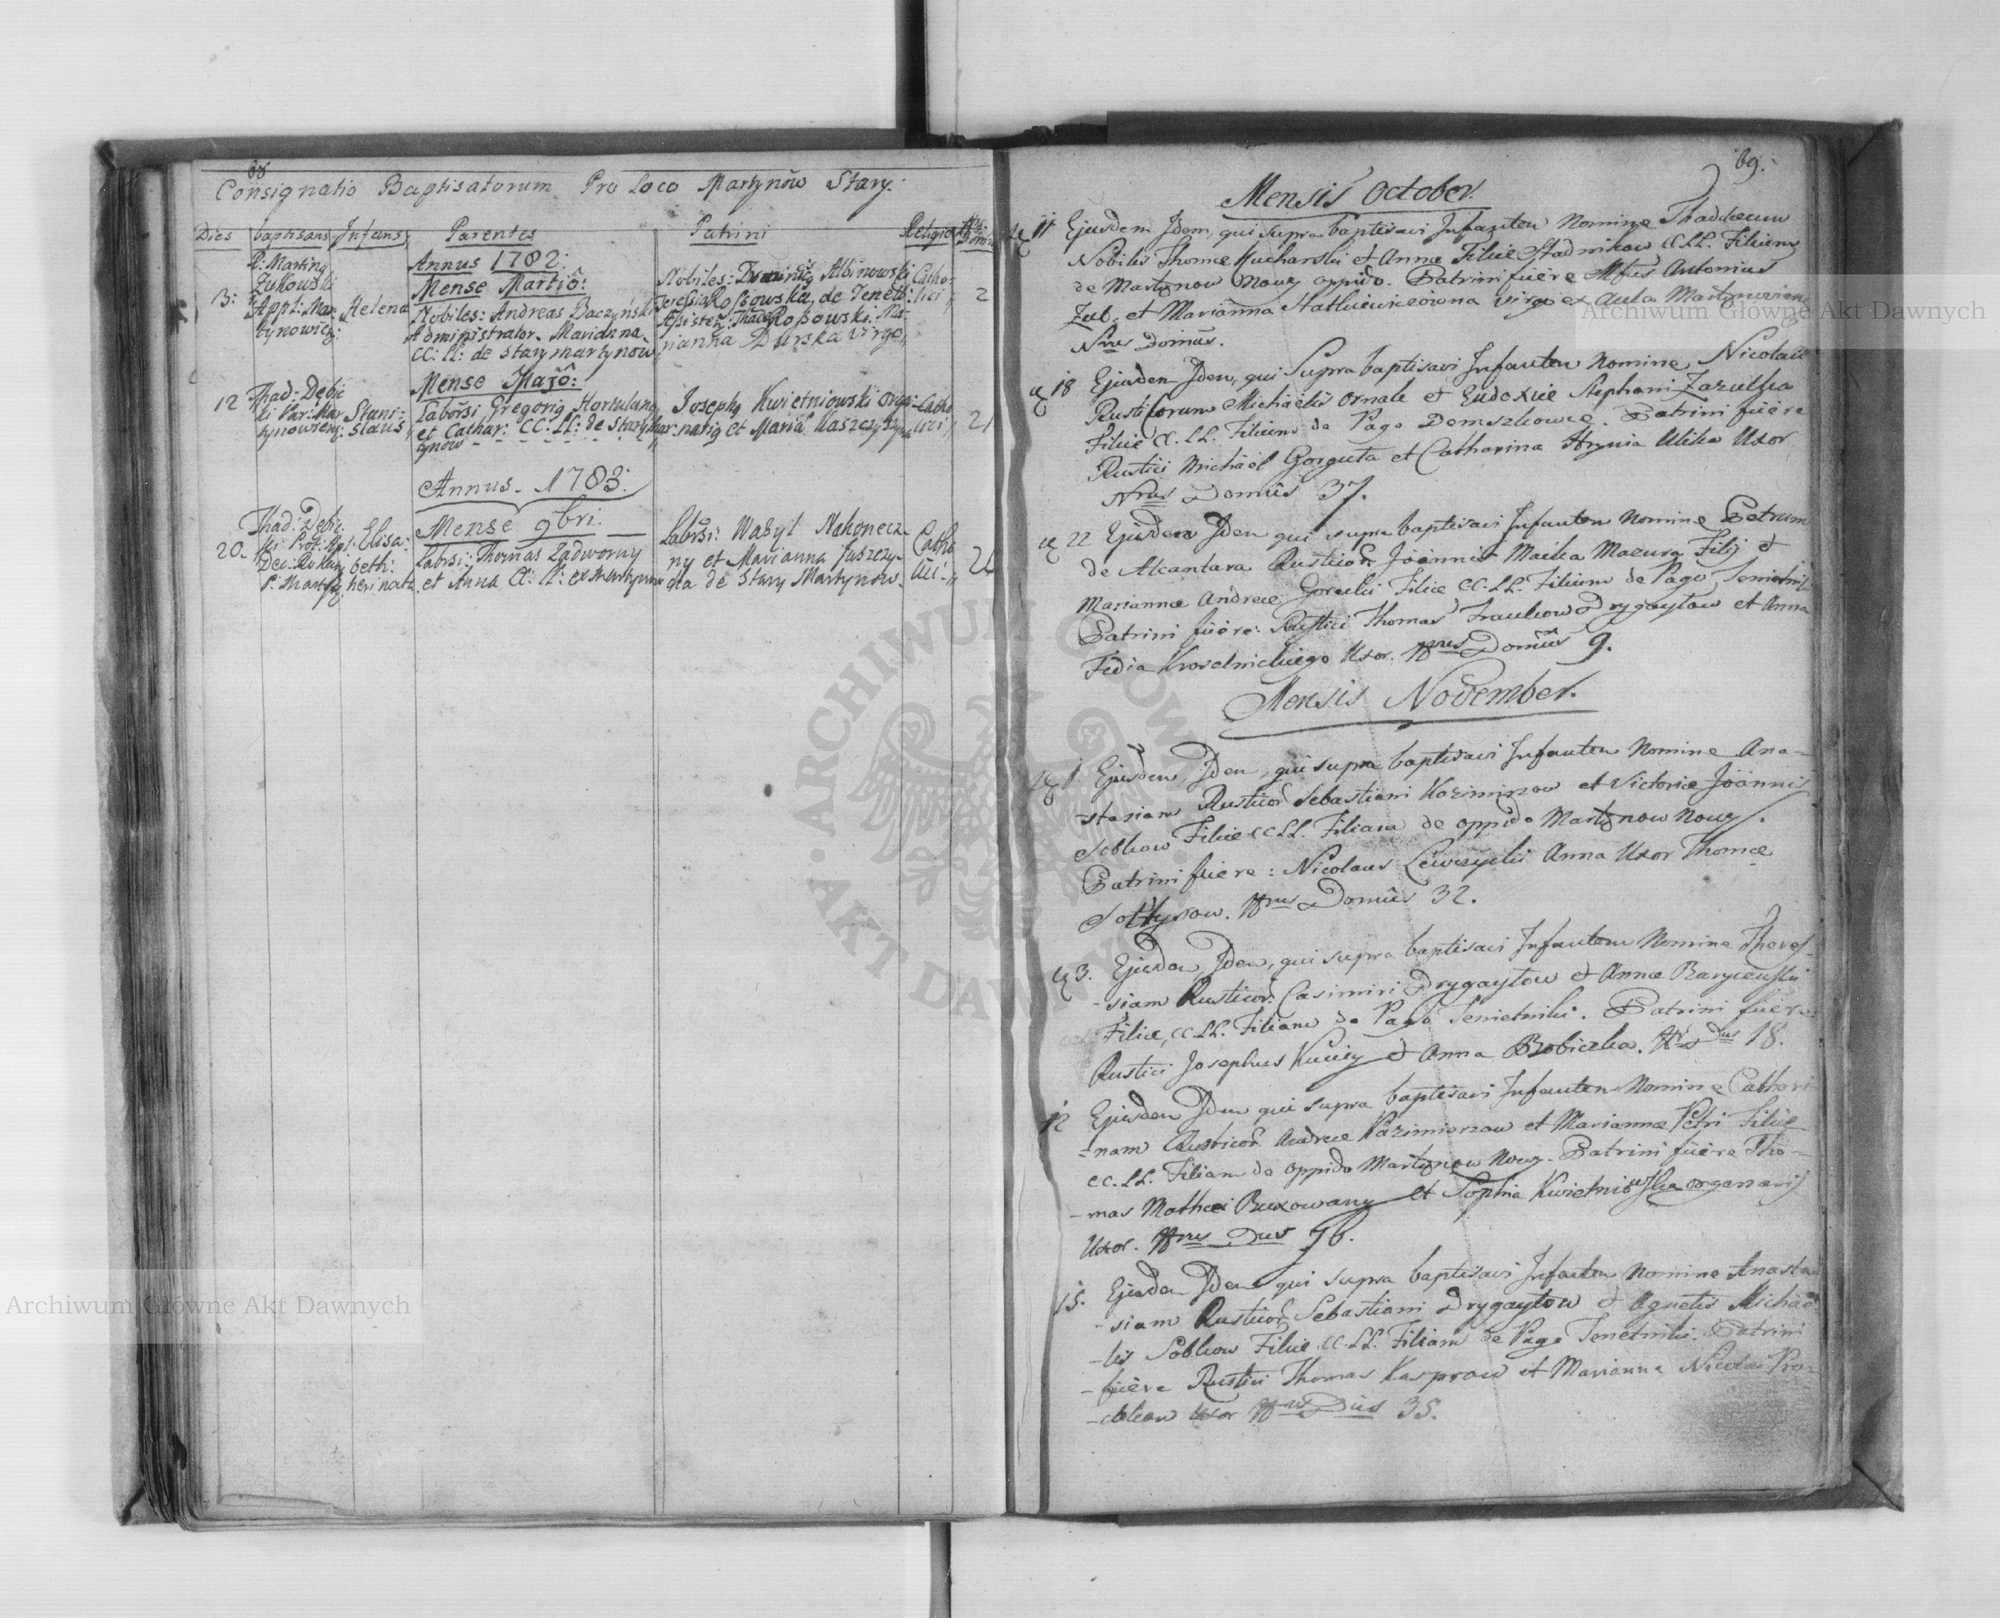 68
Consignatio Baptisatorum Pro Loco Martynów Stary.
Dies baptisans Infans Parentes Patrini Religio
Annus 1782.
Mense Martio:
3: P: Martiny Zukowski Helena
Nobiles: Andreas Baczyński
Administrator. Marianna
CC: LL: de Stary martynow
Nobiles: Albinowski
Teressia Roszowska de Tenetn:
Rossowski. Ma-
rianna Durska virgo
Catho-
lici
2
Mense Majo:
12 Thad: Dębic
ki Stani-
slaus
Laborsi: Gregorig Hortulang
et Cathar: CC: LL: de Stary Mar
tynow
Josephg Kwietniowski orga-
narig et Maria Kaszczyszyna
Catho
lici
21
Annus. 1783:
Mense 9bri:
20. Thad: Dębic
ki Elisa-
beth:
Labrsi: Thomas Zadworny
et Anna CC: LL: ex Martynow
Labrsi: Wasyl Nakonecz-
ny et Marianna Juszczy-
cha de Stary Martynow.
Catho
lici
69.
Mensis October.
11 Ejusdem Idem, qui supra baptisavi Infantem Nomine Thaddaeum
Nobilis Thomae Kucharski et Annae Filiae Stadnikow CC.LL. Filium
de Martynow Nowy oppido. Patrini fuere Antonius
Zub. et Marianna Statkiewiczówna virgo ex Aula Martynoviensi
Nrus Domûs.
18 Ejusdem Idem, qui Supra baptisavi Infantem Nomine Nicolaum
Rusticorum Michaëlis Ornale et Eudoxiae Stephani Zazulka
Filiae CC.LL. Filium de Pago Domszkowce. Patrini fuere
Rustici Michaël Gorguta et Catharina Hrynia Uxor
Nrus Domûs 37.
22 Ejusdem Idem qui supra baptisavi Infantem Nomine Petrum
de Alcantara Rusticor Joannis Maika Mazura Filij et
Mariannae Andreae Gorecki Filiae CC.LL. Filium de Pago Tenietniki
Patrini fuere: Rustici Thomas Drygaytow et Anna
Fedia Krosetnickiego Uxor. Nrus Domûs 9.
Mensis November.
1 Ejusdem Idem, qui supra baptisavi Infantem Nomine Ana-
-stasiam Rusticor Sebastiani Kozimirzow et Victoriae Joannis
Sobkow Filiae CC.LL. Filiam de oppido Martynow Nowy.
Patrini fuere: Nicolaus Anna Uxor Thomae
Soltysow. Nrus Domûs 32.
3. Ejusdem Idem, qui supra baptisavi Infantem Nomine Theres-
-siam Rusticor Casimiri Drygaytow et Annae
Filiae, CC.LL. Filiam de Pago Tenietniki. Patrini fuere:
Rustici Josephus et Anna Bobiczka. Nr Dus 18.
12 Ejusdem Idem qui supra baptisavi Infantem Nomine Cathari
-nam Rusticor Andreae Kazimierzow et Mariannae Petri Filiae
CC.LL. Filiam de oppido Martynow Nowy. Patrini fuere Tho-
-mas Mathaei Buxowany et Sophia Kwietniowska organarij
Uxor. Nrus Dus 76.
15. Ejusdem Idem qui supra baptisavi Infantem Nomine Anasta
-siam Rusticor Sebastiani Drygaytow et Agnetis Michaë
-lis Sobkow Filiae CC.LL. Filiam de Pago Tenetniki. Patrini
-fuere Rustici Thomas Kasprow et Marianna Nicolai Pro-
Uxor Nrus Dus 35.
Archiwum Główne Akt Dawnych
Archiwum Główne Akt Dawnych
ARCHIWUM GŁÓWNE AKT DAWNYCH